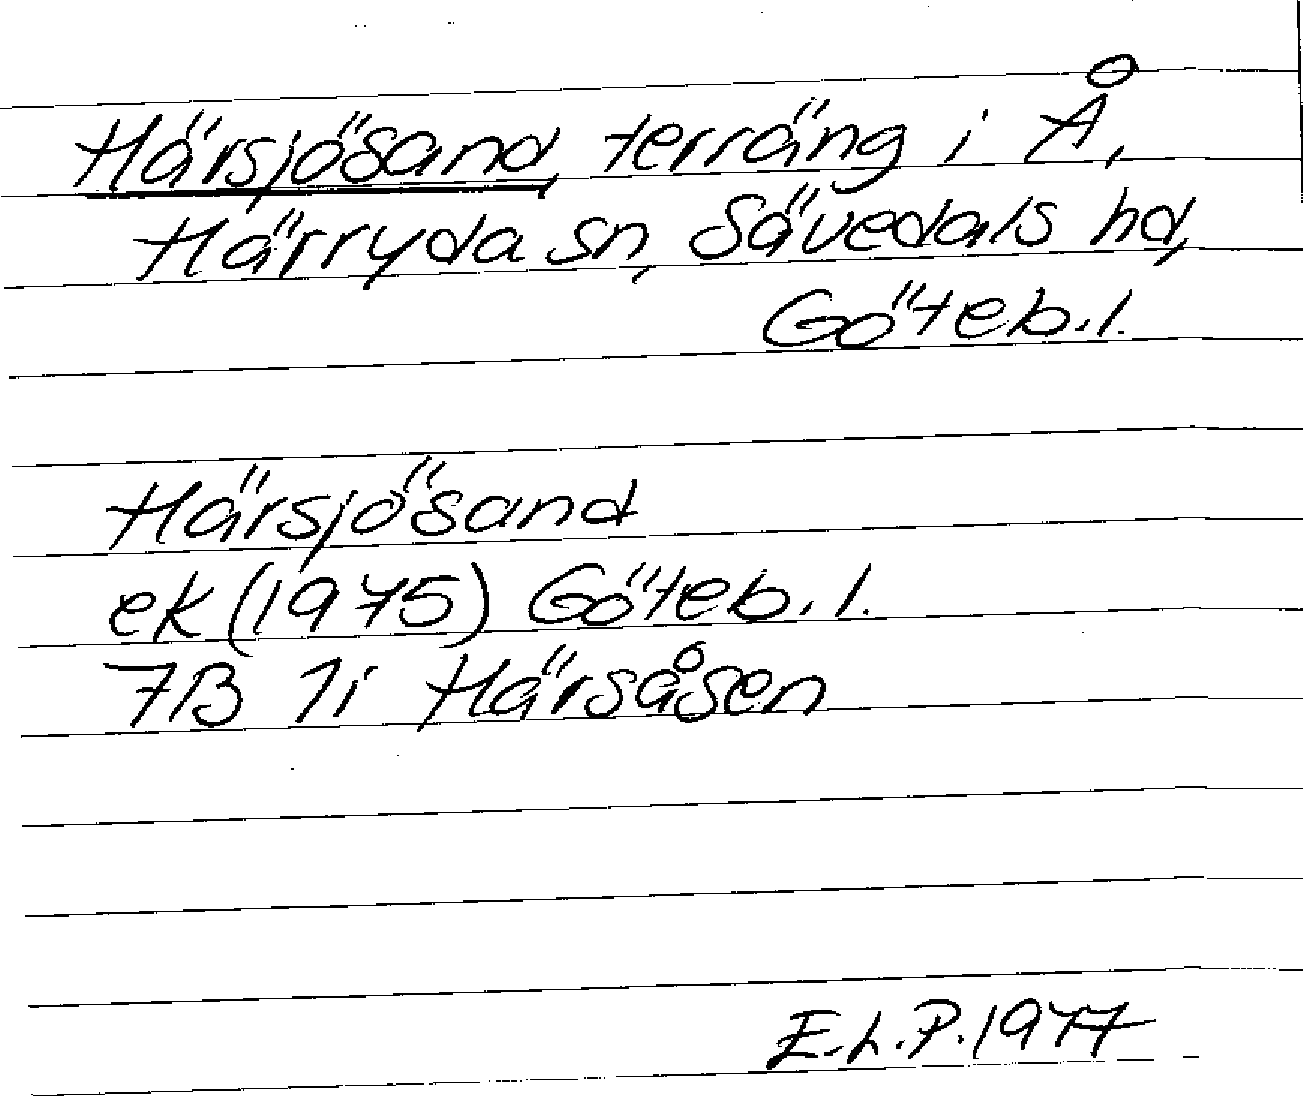 Härsjösand, terräng i Å,
Härryda sn, Sävedals hd,
Göteb.l.
Härsjösand
ek (1975) Göteb.l.
7B 1i Härsåsen
E.L.P. 1977